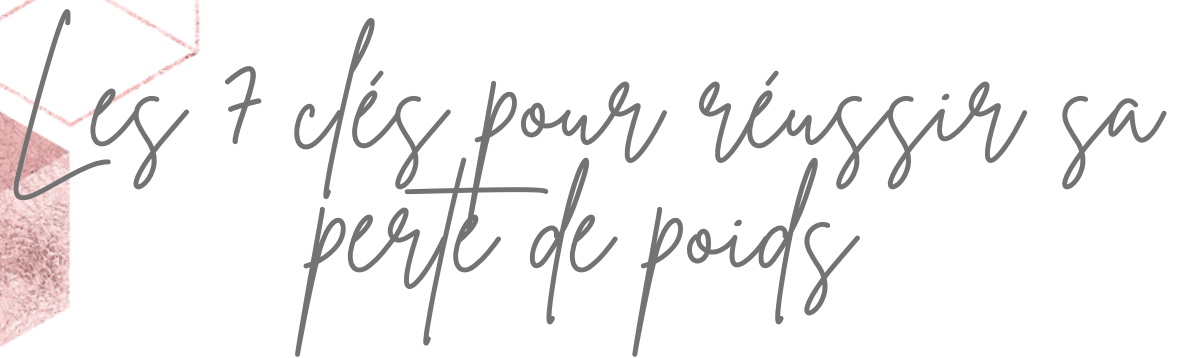 Les 7 clés pour réussir sa
perte de poids